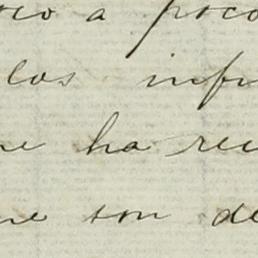 oco a poco
los infr
ne ha rec
ne son de